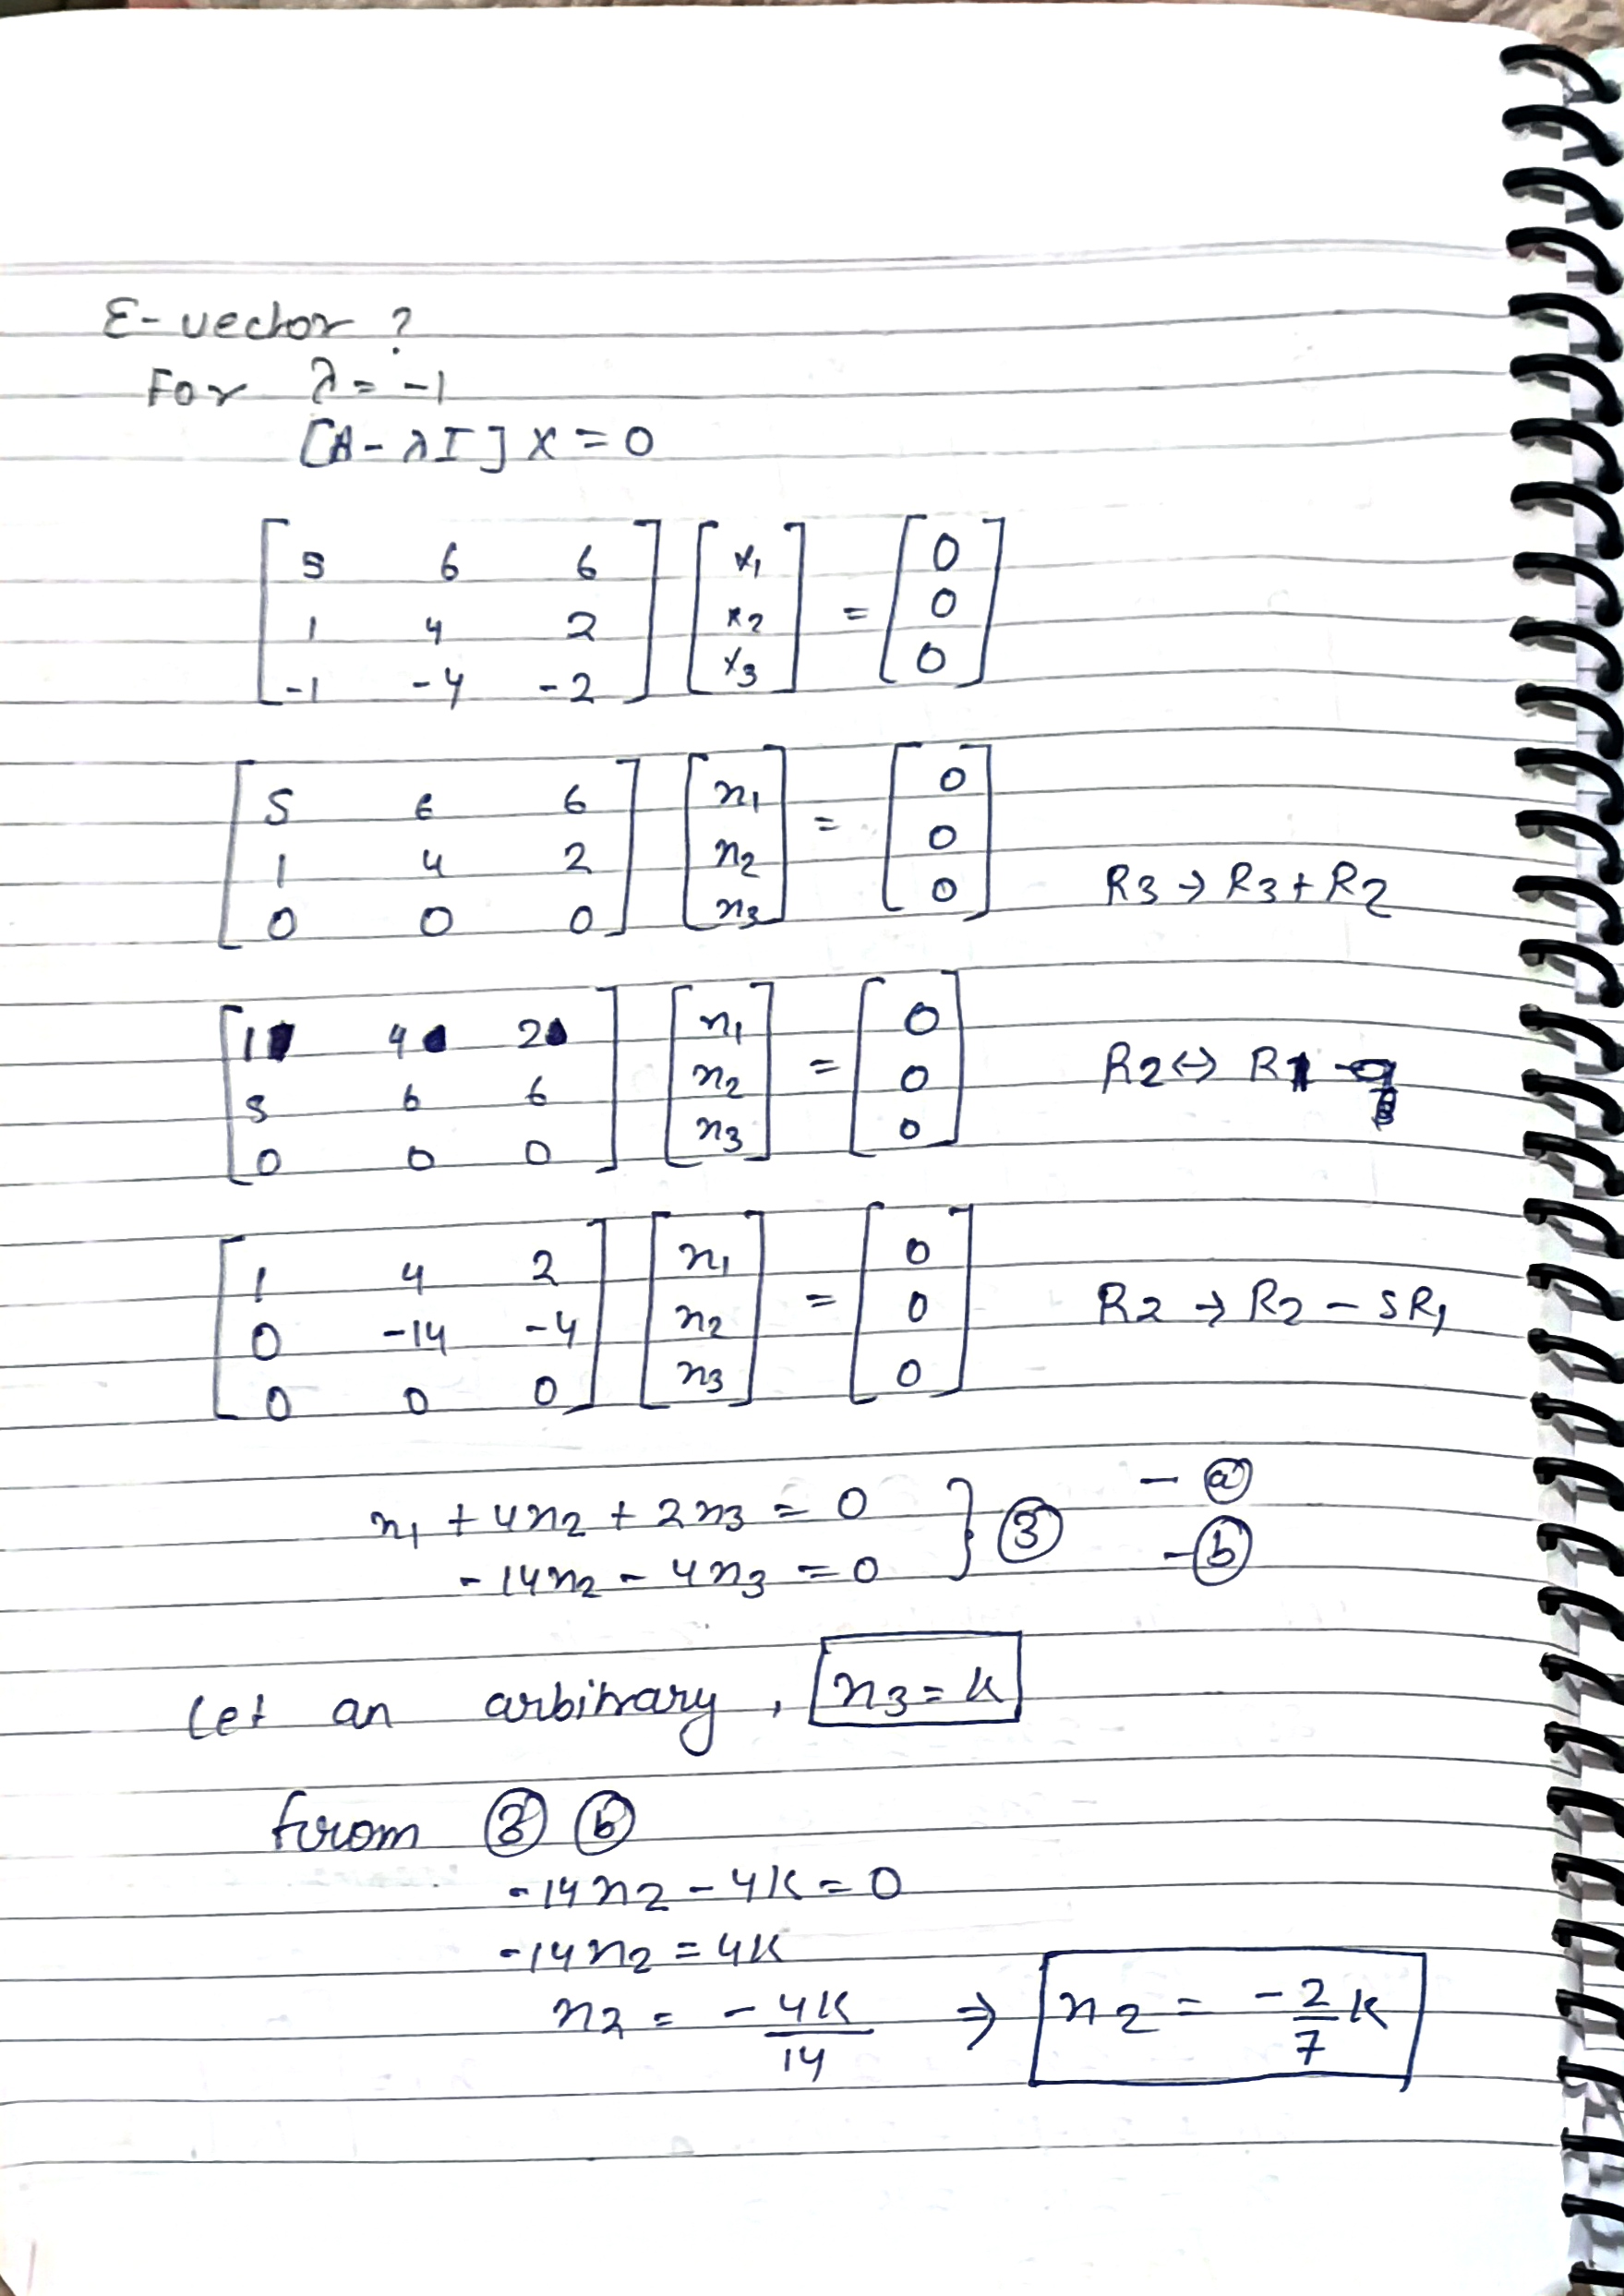 E-vector ?
For λ = -1
[A - λI] X = 0
[5 6 6; 1 4 2; -1 -4 -2] [x1; x2; x3] = [0; 0; 0]
[5 6 6; 1 4 2; 0 0 0] [x1; x2; x3] = [0; 0; 0] R3 → R3 + R2
[1 4 2; 5 6 6; 0 0 0] [x1; x2; x3] = [0; 0; 0] R2 ↔ R1
[1 4 2; 0 -14 -4; 0 0 0] [x1; x2; x3] = [0; 0; 0] R2 → R2 - 5R1
x1 + 4x2 + 2x3 = 0 } ③ - ⓐ
-14x2 - 4x3 = 0 - ⓑ
Let an arbitrary, x3 = k
from ③ ⓑ
-14x2 - 4k = 0
-14x2 = 4k
x2 = -4k/14 ⇒ x2 = -2/7 k